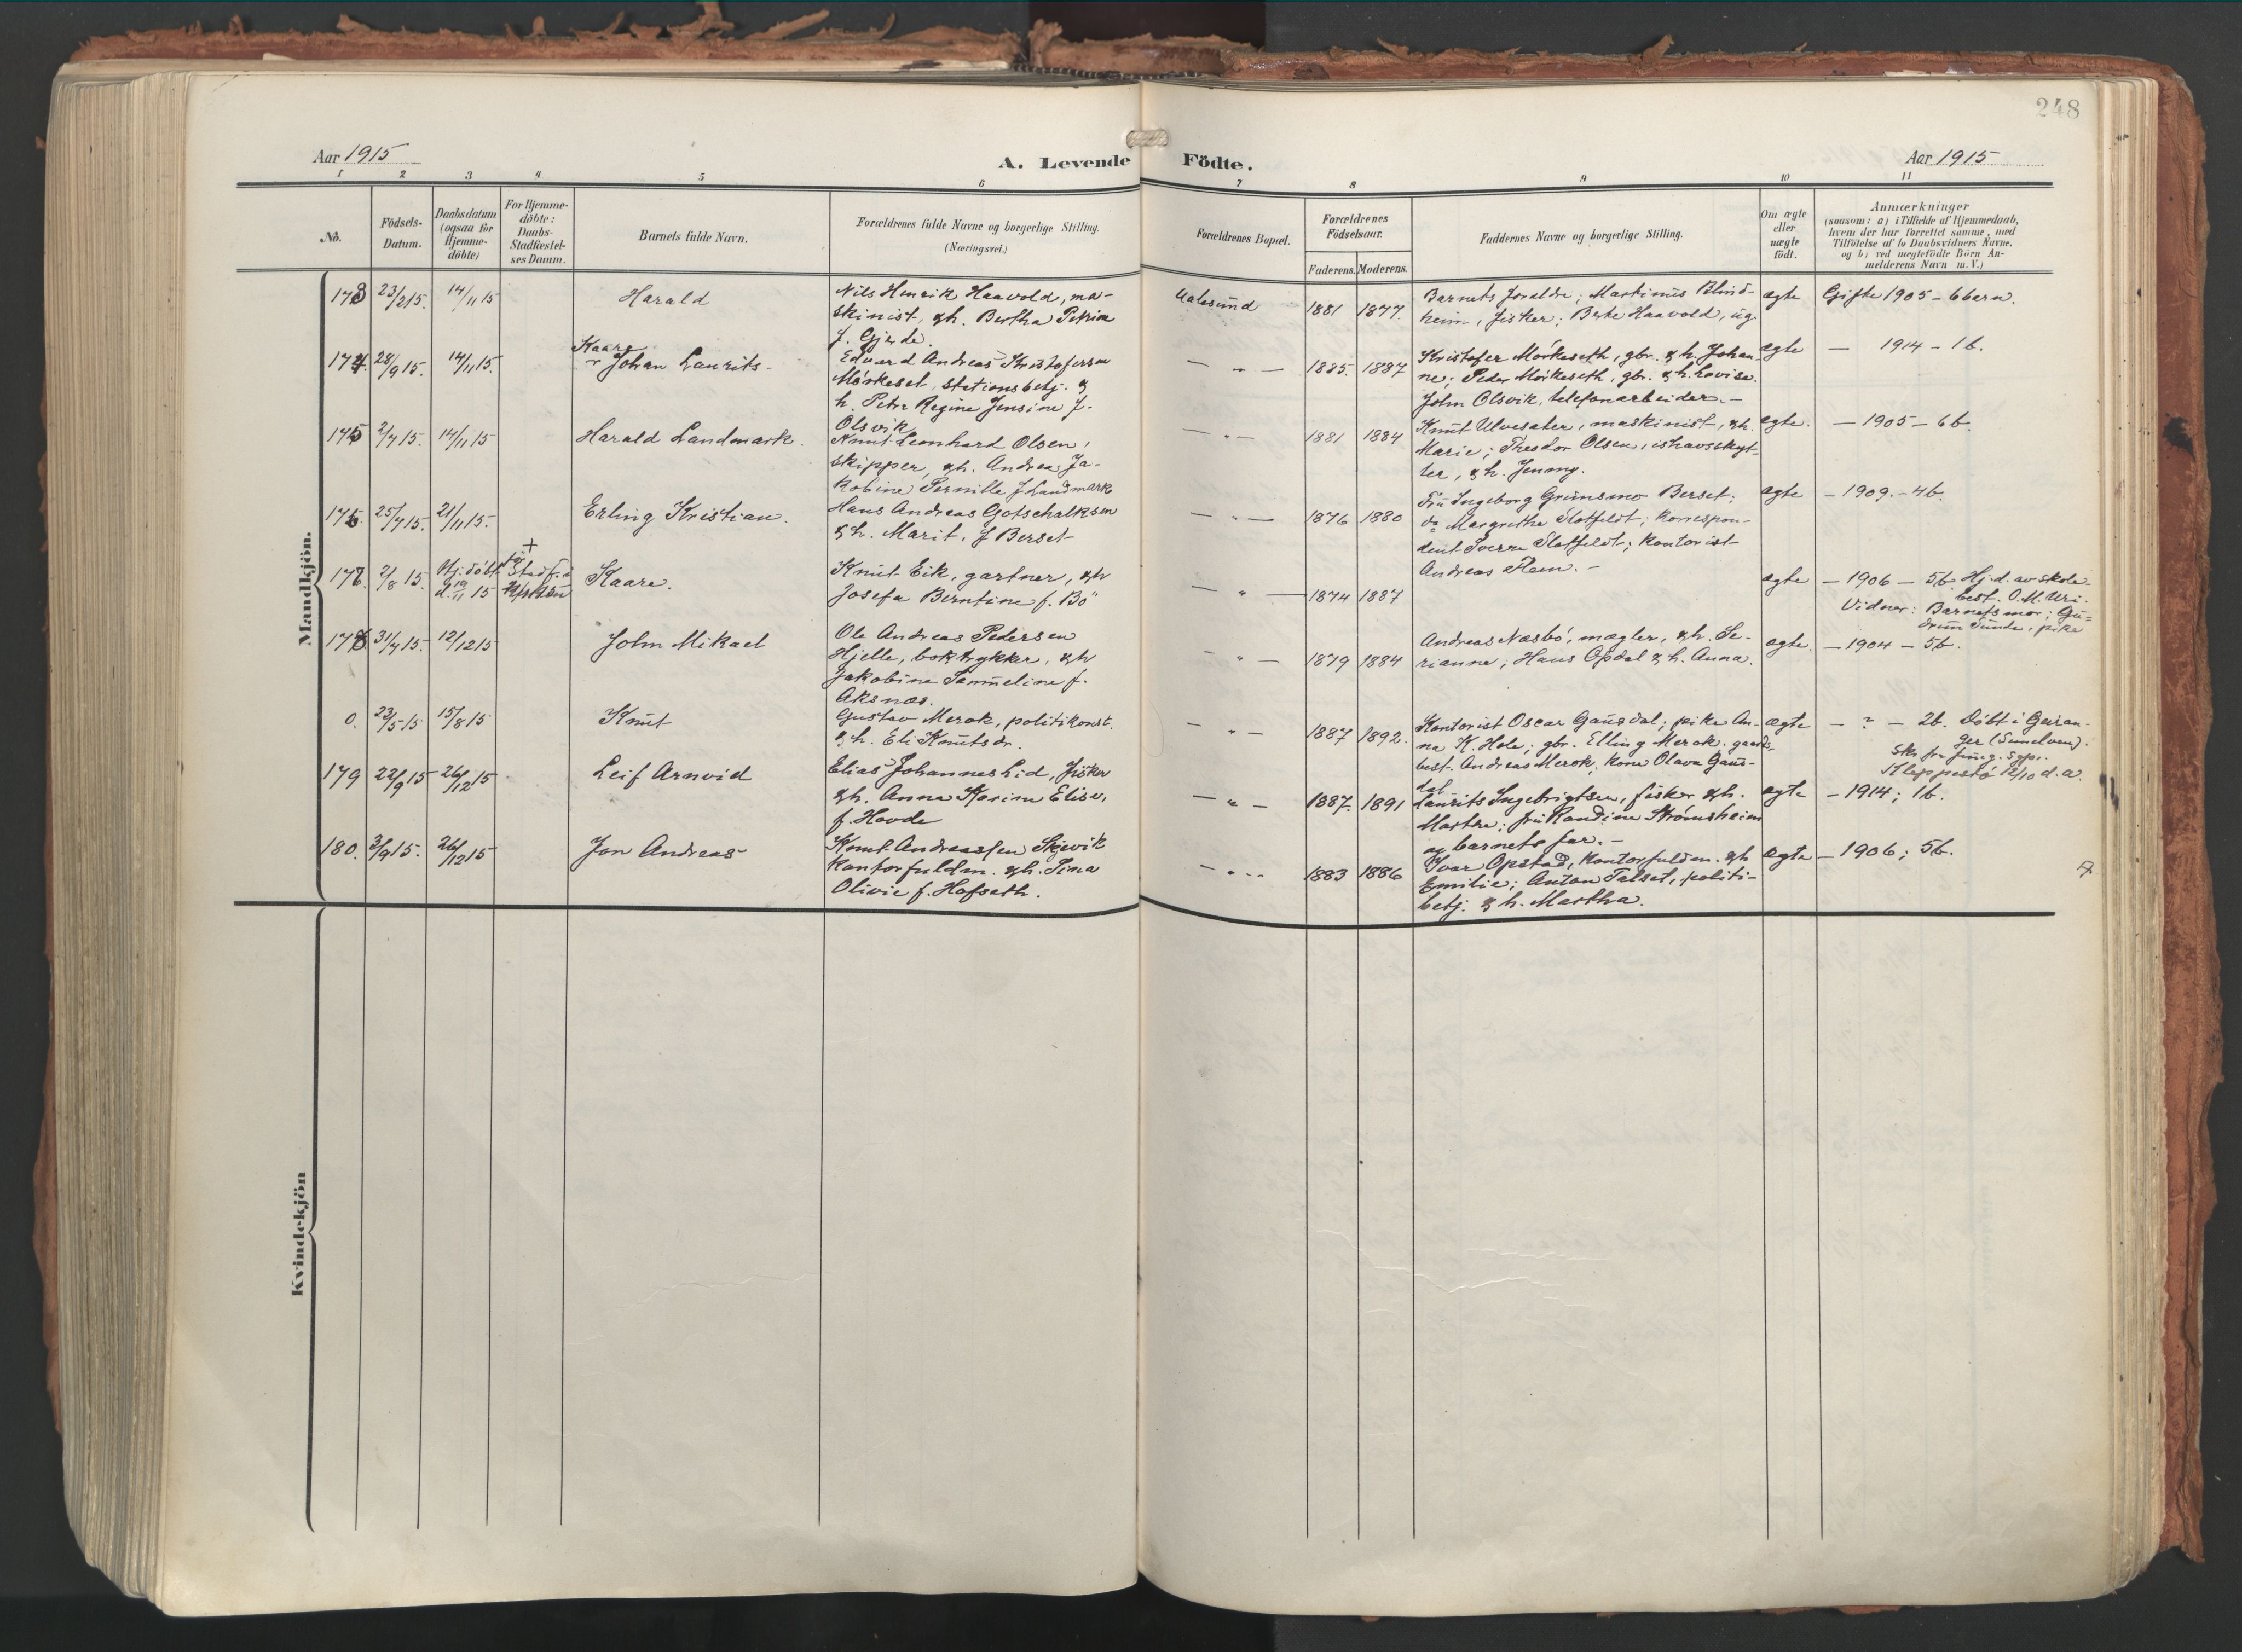 248
Aar 1915
A. Levende Födte.
Aar 1915
1 2 3 4 5 6 7 8 9 10 11
No.
Födsels-
Datum.
Daabsdatum
(ogsaa for
Hjemme-
döbte)
For Hjemme-
döbte:
Daabs-
Stadfæstel-
ses Datum.
Barnets fulde Navn.
Forældrenes fulde Navne og borgerlige Stilling.
(Næringsvei.)
Forældrenes Bopæl.
Forældrenes
Födselsaar.
Faderens. Moderens.
Faddernes Navne og borgerlige Stilling.
Om ægte
eller
uægte
födt.
Anmærkninger
(saasom: a) i Tilfælde af Hjemmedaab,
hvem der har forrettet samme, med
Tilföielse af to Daabsvidners Navne.
og b) ved uægtefödte Börn An-
melderens Navn m. V.)
Mandkjön.
173 23/2 15. 14/11 15 Harald
Nils Henrik Haavold, ma-
skinist, & h. Bertha Petrine
f. Gjerde.
Aalesund 1881 1877.
Barnets foreldre; Martinus Blind-
heim, fisker; Berte Haavold, ug.
egte Gifte 1905 - 6 barn.
174. 28/9 15. 14/11 15. Kaare
Johan Laurits
Edvard Andreas Kristofersen
Mörkeset, stationsbetj. &
h. Petra Regine Jensine f.
Olsvik
— " — 1885. 1887
Kristofer Mörkeseth, gbr. & h. Johan-
ne; Peder Mörkeseth, gbr. & h. Lovise.
John Olsvik, telefonarbeider. -
egte — 1914 - 1 b.
175 2/7 15. 14/11 15 Harald Landmark.
Knut Leonhard Olsen,
skipper, & h. Andrea Ja-
kobine Pernille f Landmark
— " — 1881 1884
Knut Ulvesæter, maskinist, & h.
Marie; Theodor Olsen, ishavsskyt-
ter, & h. Jenny.
egte. — 1905 - 6 b.
176. 25/7 15. 21/11 15. Erling Kristian.
Hans Andreas Gotschalksen
& h. Marit, f Berset
— " — 1876 1880
Fru Ingeborg Grimsmo Berset;
do Margrethe Slotfeldt; Korrespon-
dent Sverre Slotfeldt; Kontorist
Andreas Flem. -
egte — 1909. - 4 b.
177. 2/8 15. Hj. döbt
Kaare.
Knut Eik, gartner, & h
Josefa Berntine f. Bö
— " — 1874 1887
egte — 1906 — 5 b Hj. d. av skole-
best. O. M. Uri.
Vidner: Barnets mor; Gu-
drun Sunde, pike
178 31/7 15. 12/12 15 John Mikael
Ole Andreas Pedersen
Hjelle, boktrykker, & h
Jakobine Samueline f.
Aksnæs.
— " — 1879 1884
Andreas Næsbö, mægler, & h. Se-
rianna; Hans Opdal & h. Anna.
egte. — 1904 - 5 b.
0. 23/5 15 15/8 15 Knut
Gustav Merok, politikonst.
& h. Eli Knutsdr.
— " — 1887 1892.
Kontorist Oscar Gausdal; pike An-
na K. Hole; gbr. Elling Merok. gaards
best. Andreas Merok, kone Olava Gaus-
dal
ægte — ? — 2 b. Döbt i Geiran-
ger (Sunelven).
Kleppestö 12/10 d. a.
179 22/9 15 26/12 15 Leif Arnvid
Elias Johannes Lid, fisker
& h. Anna Karine Elise,
f. Hovde
— " — 1887. 1891
Laurits Ingebrigtsen, fisker & h.
Marthe; fru Randine Strömsheim
og barnets far. -
egte — 1914; 1 b.
180. 3/9 15. 26/12 15 Jon Andreas
Knut Andreassen Skjevik
kontorfuldm. & h. Tina
Olivie f. Hofseth.
— " — 1883 1886
Ivar Opstad, kontorfuldm. & h
Emilie; Anton Talset, politi-
betj. & h. Martha.
egte — 1906; 5 b.
Kvindekjön